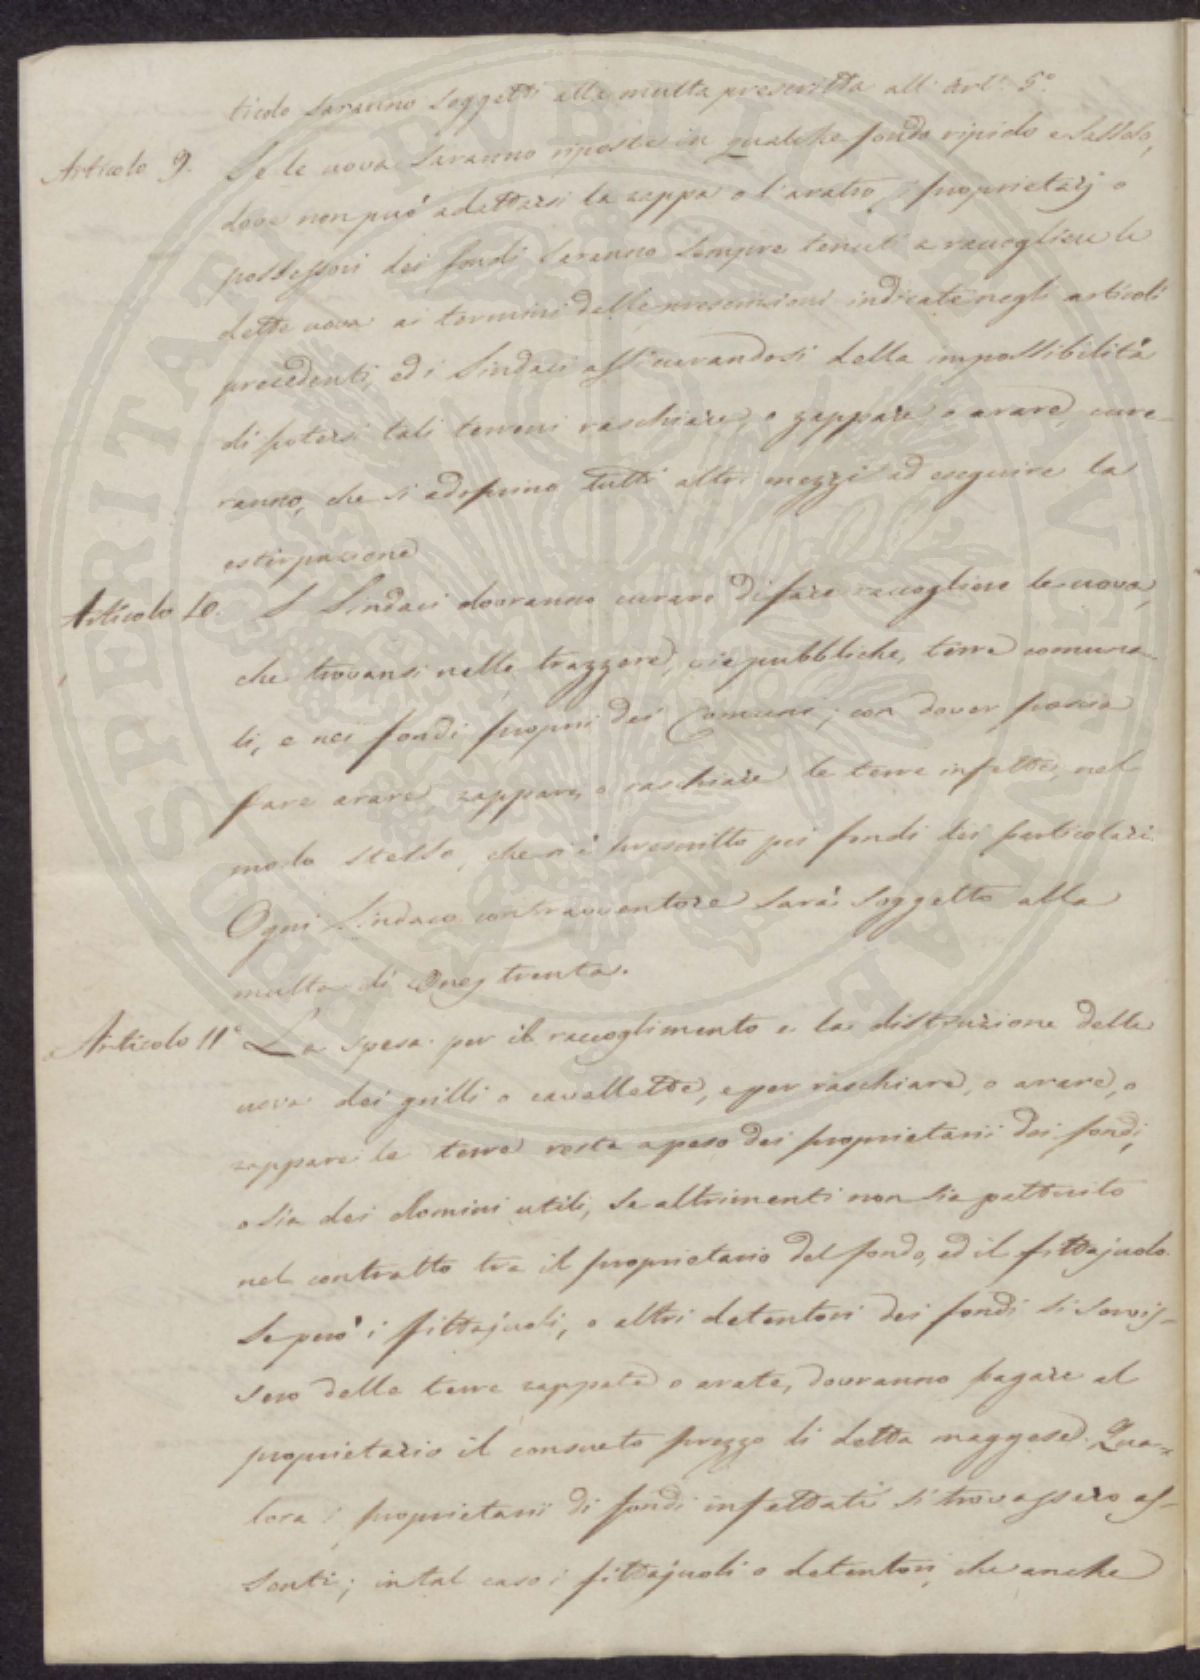 ticolo saranno soggetti alla multa prescritta all' Art.° 5.°
Articolo 9. Se le uova saranno riposte in qualche fondo ripido e sassoso,
dove non può adattarsi la zappa o l'aratro, i proprietarj o
possessori dei fondi saranno sempre tenuti a raccogliere le
dette uova ai termini delle prescrizioni indicate negli articoli
precedenti, ed i Sindaci assicurandosi della impossibilità
di potersi tali terreni raschiare, o zappare o arare, cure-
ranno, che si adoprino tutti altri mezzi ad eseguire la
estirpazione
Articolo 10. I Sindaci dovranno curare di fare raccogliere le uova,
che trovansi nelle trazzere, vie pubbliche, terre comuna-
li, e nei fondi proprii dei Comuni; con dover poscia
fare arare, zappare, o raschiare le terre infette, nel
modo stesso, che si è prescritto pei fondi dei particolari.
Ogni Sindaco contravventore sarà soggetto alla
multa di Onze trenta.
Articolo 11.° La spesa per il raccoglimento e la distruzione delle
uova dei grilli o cavallette, e per raschiare, o arare, o
zappare le terre resta a peso dei proprietarii dei fondi,
o sia dei domini utili, se altrimenti non sia pattuito
nel contratto tra il proprietario del fondo, ed il fittajuolo.
Se però i fittajuoli, o altri detentori dei fondi si servis-
sero delle terre zappate o arate, dovranno pagare al
proprietario il consueto prezzo di detta maggese. Qua-
lora i proprietarii di fondi infettati si trovassero as-
senti; in tal caso i fittajuoli o detentori, che anche
PROSPERITATI PVBLICAE AVGENDAE